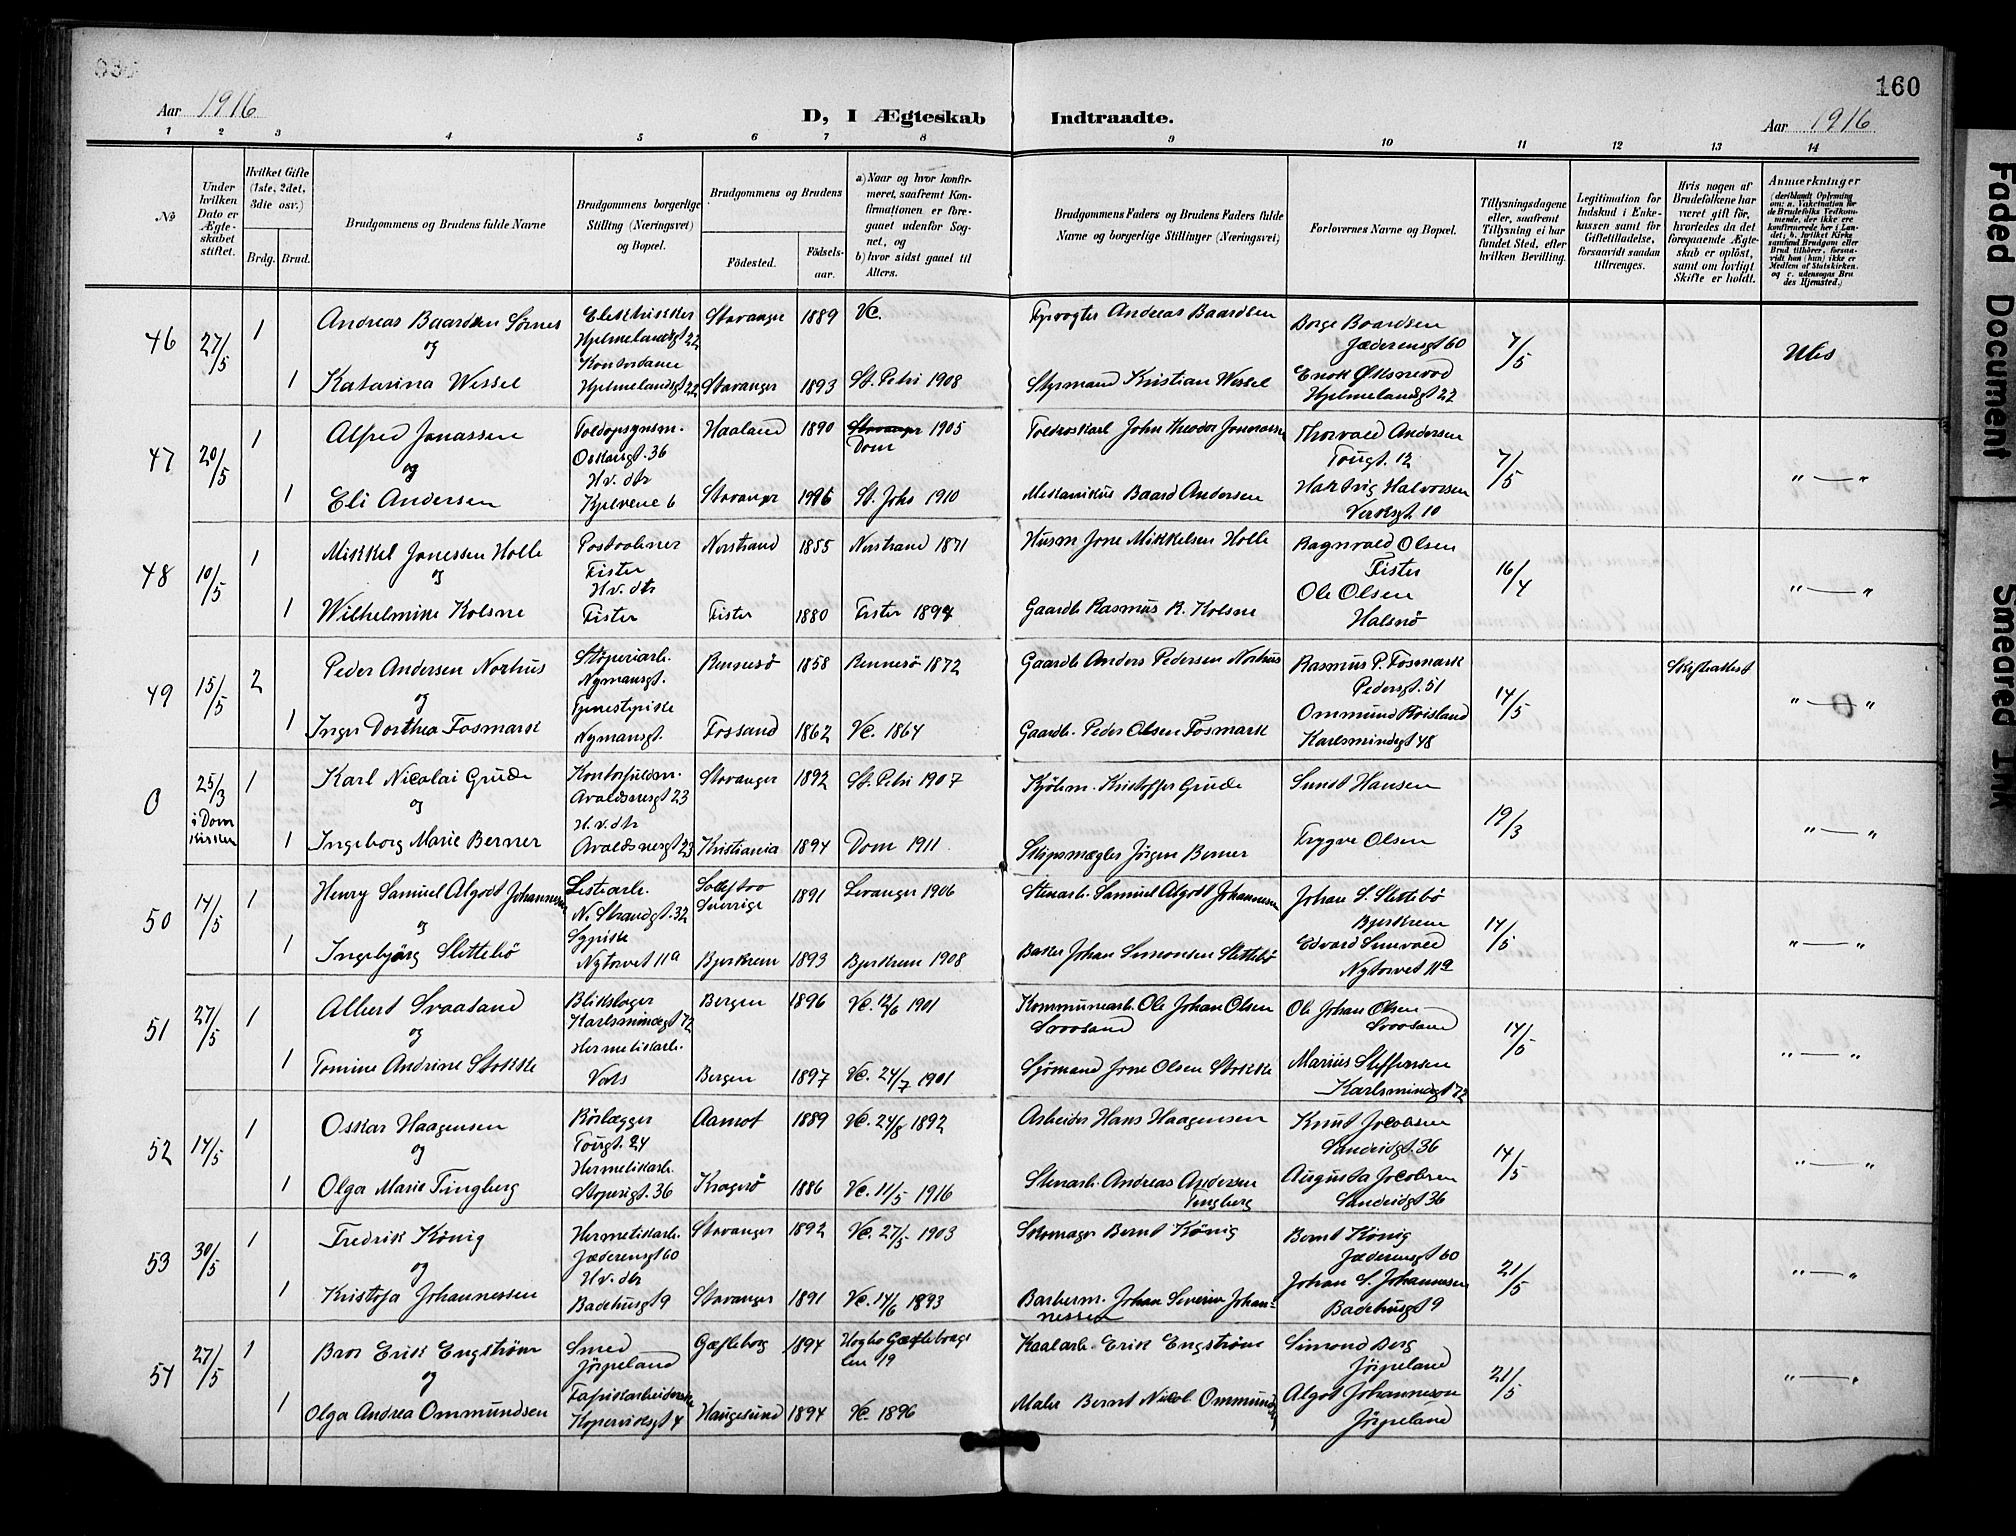 160
Aar 1916
D, I Ægteskab Indtraadte.
Aar 1916
1 2 3 4 5 6 7 8 9 10 11 12 13 14
№
Under hvilken Dato er Ægteskabet stiftet.
Hvilket Gifte (1ste, 2det, 3die osv.)
Brdg. Brud.
Brudgommens og Brudens fulde Navne
Brudgommens borgerlige Stilling (Næringsvei) og Bopæl.
Brudgommens og Brudens
Fødested.
Fødselsaar.
a) Naar og hvor konfirmeret, saafremt Konfirmationen er foregaaet udenfor Sognet, og
b) hvor sidst gaaet til Alters.
Brudgommens Faders og Brudens Faders fulde Navne og borgerlige Stillinger (Næringsvei)
Forlovernes Navne og Bopæl.
Tillysningsdagene eller, saafremt Tillysning ei har fundet Sted, efter hvilken Bevilling.
Legitimation for Indskud i Enkekassen samt for Giftetilladelse, forsaavidt saadan tiltrænges.
Hvis nogen af Brudefolkene har været gift før, hvorledes da det foregaaende Ægteskab er opløst, samt om lovligt Skifte er holdt.
Anmærkninger
(deriblandt Oplysning om: a. Vaksination for de Brudefolks Vedkommende, der ikke ere konfirmerede her i Landet; b. hvilket Kirkesamfund Brudgom eller Brud tilhører, forsaavidt han (hun) ikke er Medlem af Statskirken. og c. udensogns Brudes Hjemsted.)
46 27/5 1 Andreas Baardsen Sørnes Elektrikker Hjelmelandsgt 22 Stavanger 1889 Vc. Fyrvogter Andreas Baardsen Børge Baardsen Jæderensgt 60 7/5
og
1 Katarina Wessel Kontordame Hjelmelandsgt 22 Stavanger 1893 St. Petri 1908 Styrmand Kristian Wessel Enok Øksnevad Hjelmelandsgt 22
47 20/5 1 Alfred Jonassen Toldopsynsm. Oskarsgt. 36 Haaland 1890 Stavanger 1905 Dom Toldroskarl John Theodor Jonassen Thorvald Andersen Tougt. 12 7/5 " — "
og
1 Eli Andersen Hv. dtr Kjelvene 6 Stavanger 1996 St. Johs 1910 Mekanikus Baard Andersen Hartvig Halvorsen Verksgt 10
48 10/5 1 Mikkel Jonessen Holle Postaabner Fister Nerstrand 1855 Nerstrand 1871 Husm Jone Mikkelsen Holle Ragnvald Olsen Fister 16/4 " — "
og
1 Wilhelmine Kolsne Hv. dtr Fister Fister 1880 Fister 1894 Gaardb Rasmus R. Kolsne Ole Olsen Halsnø
49 15/5 2 Peder Andersen Norhus Støperiarb. Nymansgt. Rennesø 1858 Rennesø 1872 Gaardb Anders Pedersen Norhus Rasmus P. Fosmark Pedersgt. 51 14/5 Skifteattest " — "
og
1 Inger Dorthea Fosmark Tjenestepike Nymansgt. Fossand 1862 Vc. 1864 Gaardb. Peder Olsen Fosmark Ommund Kvisland Karlsmindegt 48
0 25/3 i Domkirken 1 Karl Nicolai Grude Kontorfuldm. Avaldsnesgt 23 Stavanger 1892 St. Petri 1907 Kjøbm. Kristoffer Grude Sunst Hansen 19/3 " — "
og
1 Ingeborg Marie Berner H.v. dtr Avaldsnesgt 23 Kristiania 1894 Dom 1911 Skipsmægler Jørgen Berner Trygve Olsen
50 14/5 1 Henry Samuel Algodt Johannesen N. Strandgt. 32 Sverrige 1891 Levanger 1906 Stenarb. Samuel Algott Johannesen Johan S. Slettebø Bjerkrem 14/5 " — "
og
1 Ingebjørg Slettebø Sypike Nytorvet 11a Bjerkrem 1893 Bjerkrem 1908 Baker Johan Simonsen Slettebø Edvard Sunvald Nytorvet 11a
51 27/5 1 Albert Svaasand Blikslager Karlsmindegt 72 Bergen 1896 Vc. 12/6 1901 Kommunearb. Ole Johan Olsen Svaasand Ole Johan Olsen Svaasand 14/5 " — "
og
1 Tomine Andrine Stokke Hermetikarb. Vats Bergen 1897 Vc. 24/7 1901 Sjømand Jone Olsen Stokke Marius Steffensen Karlsmindegt 72
52 14/5 1 Oskar Haagensen Rørlægger Tougt. 24 Aamot 1889 Vc. 24/8 1892 Arbeider Hans Haagensen Knut Jacobsen Sandeidgt. 36 14/5 " — "
og
1 Olga Marie Tingberg Hermetikarb. Støperigt. 36 Kragerø 1886 Vc. 11/5 1916 Stenarb. Andreas Andersen Tingberg Augusta Jacobsen Sandeidgt 36
53 30/5 1 Fredrik König Hermetikarb. Jæderensgt 60 Stavanger 1892 Vc. 27/5 1903 Skomager Bernt König Bernt König Jæderensgt 60 21/5 " — "
og
1 Kristofa Johannessen Hv. dtr Badehusgt 9 Stavanger 1891 Vc. 14/6 1893 Barberm. Johan Severin Johannessen Johan S. Johannesen Badehusgt 9
54 27/5 1 Bror Erik Engstrøm Smed Jørpeland Gæfleborg 1894 Hogbo Gæfleborgs len 19 Erik Engstrøm Simond Berg Jørpeland 21/5 " — "
og
1 Olga Andrea Ommundsen Fabrikarbeiderske Kopervikgt 4 Haugesund 1894 Vc. 1896 Maler Bernt Nicol. Ommundsen Algot Johanneson Jørpeland
Faded Document
Smeared Ink